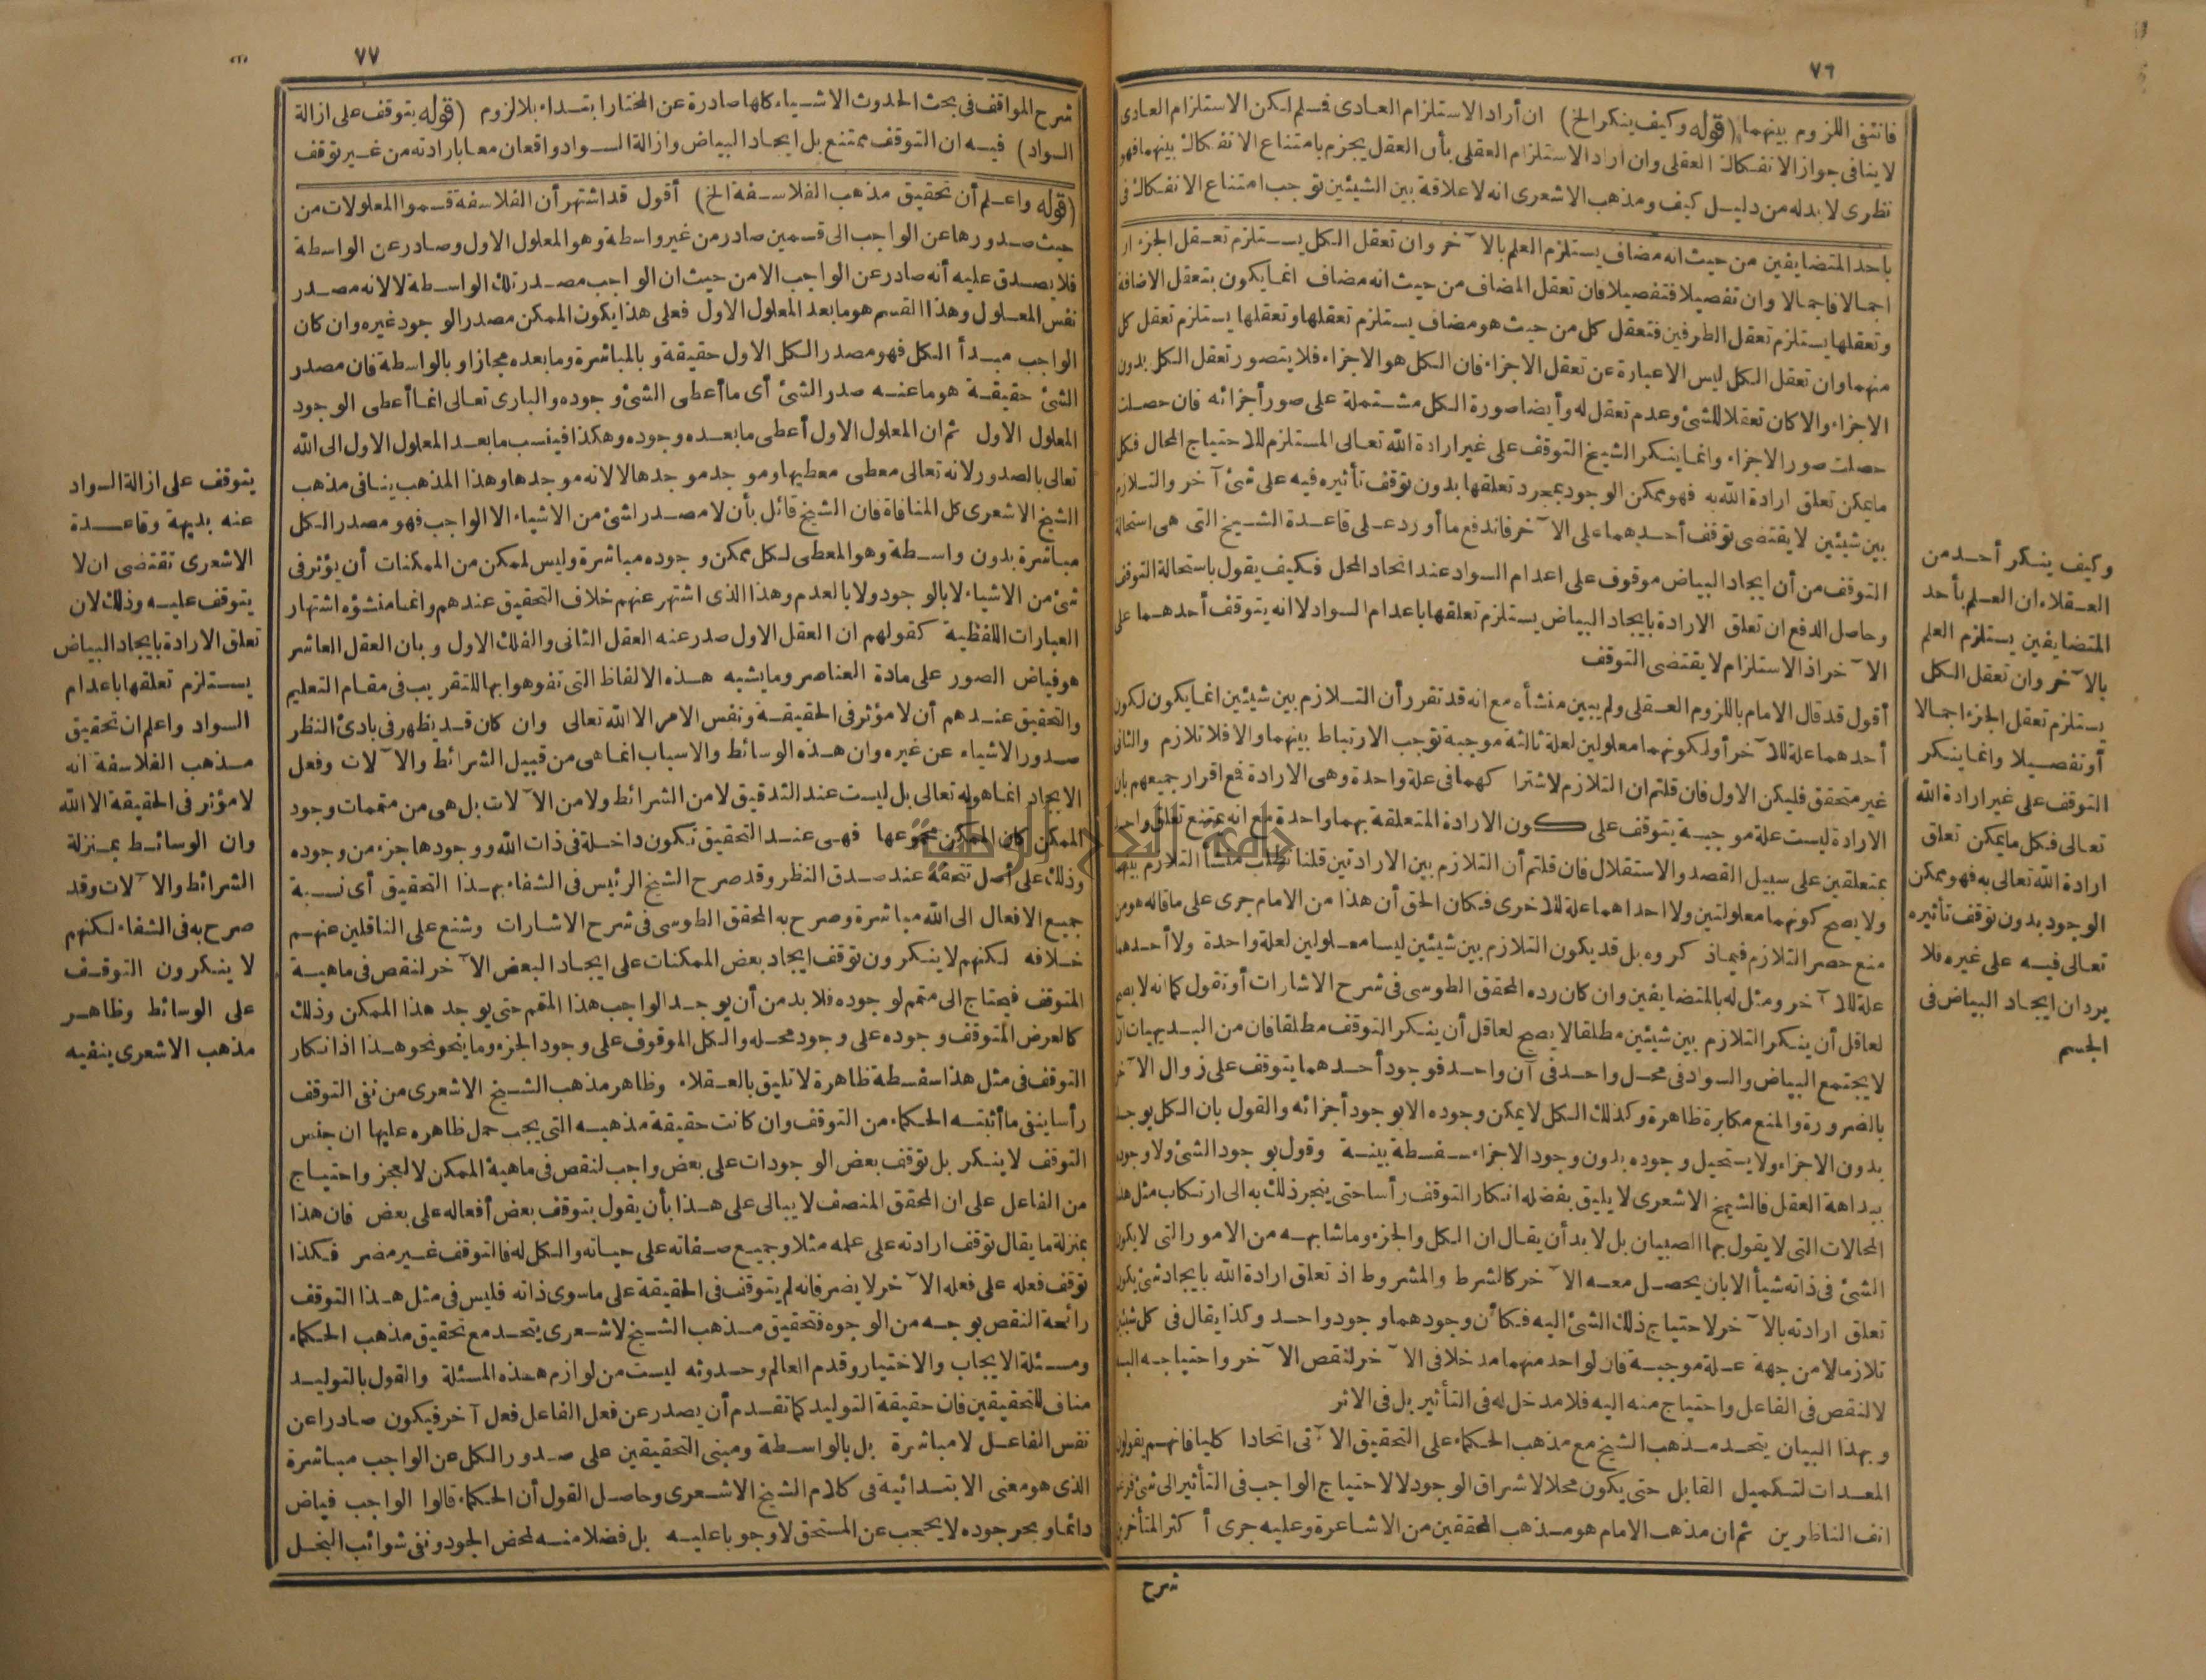 ٧٦
فانتفى اللزوم بينهما (قوله وكيف ينكر الخ) ان أراد الاستلزام العادى فسلم لكن الاستلزام العادى
لا ينافى جواز الانفكاك العقلى وان أراد الاستلزام العقلى بأن العقل يجزم بامتناع الانفكاك بينهما فهو
نظرى لا بد له من دليل كيف ومذهب الاشعرى انه لا علاقة بين الشيئين توجب امتناع الانفكاك فى
باحد المتضايفين من حيث انه مضاف يستلزم العلم بالآخر وان تعقل الكل يستلزم تعقل الجزء ان
اجمالا فاجمالا وان تفصيلا فتفصيلا فان تعقل المضاف من حيث انه مضاف انما يكون بتعقل الاضافة
وتعقلها يستلزم تعقل الطرفين فتعقل كل من حيث هو مضاف يستلزم تعقلها وتعقلها يستلزم تعقل كل
منهما وان تعقل الكل ليس الا عبارة عن تعقل الاجزاء فان الكل هو الاجزاء فلا يتصور تعقل الكل بدون
الاجزاء والا كان تعقلا للشئ وعدم تعقل له وأيضا صورة الكل مشتملة على صور أجزائه فان حصلت
حصلت صور الاجزاء وانما ينكر الشيخ التوقف على غير ارادة الله تعالى المستلزم للاحتياج المحال فكل
ما يمكن تعلق ارادة الله به فهو ممكن الوجود بمجرد تعلقها بدون توقف تأثيره فيه على شئ آخر والتلازم
بين شيئين لا يقتضى توقف أحدهما على الآخر فاندفع ما أورد على قاعدة الشيخ التى هى استحالة
التوقف من أن ايجاد البياض موقوف على اعدام السواد عند اتحاد المحل فكيف يقول باستحالة التوقف
وحاصل الدفع ان تعلق الارادة بايجاد البياض يستلزم تعلقها باعدام السواد لا انه يتوقف أحدهما على
الآخر اذ الاستلزام لا يقتضى التوقف
أقول قد قال الامام باللزوم العقلى ولم يبين منشأه مع انه قد تقرر أن التلازم بين شيئين انما يكون لكون
أحدهما علة للآخر أو لكونهما معلولين لعلة ثالثة موجبة توجب الارتباط بينهما والا فلا تلازم والثانى
غير متحقق فليكن الاول فان قلتم ان التلازم لاشتراكهما فى علة واحدة وهى الارادة فمع اقرار جميعهم بان
الارادة ليست علة موجبة يتوقف على كون الارادة المتعلقة بهما واحدة مع انه يمتنع تعلق واحد
بمتعلقين على سبيل القصد والاستقلال فان قلتم أن التلازم بين الارادتين قلنا نطلب منشأ التلازم بينهما
ولا يصح كونهما معلولتين ولا احداهما علة للاخرى فكان الحق أن هذا من الامام جرى على ما قاله هو من
منع حصر التلازم فيما ذكروه بل قد يكون التلازم بين شيئين ليسا معلولين لعلة واحدة ولا أحدهما
علة للآخر ومثل له بالمتضايفين وان كان رده المحقق الطوسى فى شرح الاشارات أو نقول كما انه لا يصح
لعاقل أن ينكر التلازم بين شيئين مطلقا لا يصح لعاقل أن ينكر التوقف مطلقا فان من البديهيات ان
لا يجتمع البياض والسواد فى محل واحد فى آن واحد فوجود أحدهما يتوقف على زوال الآخر
بالضرورة والمنع مكابرة ظاهرة وكذلك الكل لا يمكن وجوده الا بوجود أجزائه والقول بان الكل يوجد
بدون الاجزاء ولا يستحيل وجوده بدون وجود الاجزاء سفسطة بينة وقول بوجود الشئ ولا وجوده
ببداهة العقل فالشيخ الاشعرى لا يليق بفضله انكار التوقف رأسا حتى ينجر ذلك به الى ارتكاب مثل هذه
المحالات التى لا يقول بها الصبيان بل لا بد أن يقال ان الكل والجزء وما شابهه من الامور التى لا يكون
الشئ فى ذاته شيأ الا بان يحصل معه الآخر كالشرط والمشروط اذ تعلق ارادة الله بايجاد شئ يكون
تعلق ارادته بالآخر لاحتياج ذلك الشئ اليه فكأن وجودهما وجود واحد وكذا يقال فى كل شيئين
تلازما لا من جهة علة موجبة فان لواحد منهما مدخلا فى الآخر لنقص الآخر واحتياجه اليه
لا لنقص فى الفاعل واحتياج منه اليه فلا مدخل له فى التأثير بل فى الاثر
وبهذا البيان يتحد مذهب الشيخ مع مذهب الحكماء على التحقيق الآتى اتحادا كليا فانهم يقولون
المعدات لتكميل القابل حتى يكون محلا لاشراق الوجود لا لاحتياج الواجب فى التأثير الى شئ
انف الناظرين ثم ان مذهب الامام هو مذهب المحققين من الاشاعرة وعليه جرى أكثر المتأخرين
شرح
وكيف ينكر أحد من
العقلاء ان العلم بأحد
المتضايفين يستلزم العلم
بالآخر وان تعقل الكل
يستلزم تعقل الجزء اجمالا
أو تفصيلا وانما ينكر
التوقف على غير ارادة الله
تعالى فكل ما يمكن تعلق
ارادة الله تعالى به فهو ممكن
الوجود بدون توقف تأثيره
تعالى فيه على غيره فلا
يرد ان ايجاد البياض فى
الجسم
٧٧
شرح المواقف فى بحث الحدوث الاشياء كلها صادرة عن المختار ابتداء بلا لزوم (قوله يتوقف على ازالة
السواد) فيه ان التوقف ممتنع بل ايجاد البياض وازالة السواد واقعان معا بارادته من غير توقف
(قوله واعلم أن تحقيق مذهب الفلاسفة الخ) أقول قد اشتهر أن الفلاسفة قسموا المعلولات من
حيث صدورها عن الواجب الى قسمين صادر من غير واسطة وهو المعلول الاول وصادر عن الواسطة
فلا يصدق عليه أنه صادر عن الواجب الا من حيث ان الواجب مصدر تلك الواسطة لا لانه مصدر
نفس المعلول وهذا القسم هو ما بعد المعلول الاول فعلى هذا يكون الممكن مصدر الوجود غيره وان كان
الواجب مبدأ الكل فهو مصدر الكل الاول حقيقة وبالمباشرة وما بعده مجازا وبالواسطة فان مصدر
الشئ حقيقة هو ما عنه صدر الشئ أى ما أعطى الشئ وجوده والبارى تعالى انما أعطى الوجود
المعلول الاول ثم ان المعلول الاول أعطى ما بعده وجوده وهكذا فينسب ما بعد المعلول الاول الى الله
تعالى بالصدور لانه تعالى معطى معطيها وموجد موجدها لا لانه موجدها وهذا المذهب ينافى مذهب
الشيخ الاشعرى كل المنافاة فان الشيخ قائل بأن لا مصدر لشئ من الاشياء الا الواجب فهو مصدر الكل
مباشرة بدون واسطة وهو المعطى لكل ممكن وجوده مباشرة وليس لممكن من الممكنات أن يؤثر فى
شئ من الاشياء لا بالوجود ولا بالعدم وهذا الذى اشتهر عنهم خلاف التحقيق عندهم وانما منشؤه اشتهار
العبارات اللفظية كقولهم ان العقل الاول صدر عنه العقل الثانى والفلك الاول وبان العقل العاشر
هو فياض الصور على مادة العناصر وما يشبه هذه الالفاظ التى تفوهوا بها للتقريب فى مقام التعليم
والتحقيق عندهم أن لا مؤثر فى الحقيقة ونفس الامر الا الله تعالى وان كان قد يظهر فى بادئ النظر
صدور الاشياء عن غيره وان هذه الوسائط والاسباب انما هى من قبيل الشرائط والآلات وفعل
الايجاد انما هو له تعالى بل ليست عند التدقيق لا من الشرائط ولا من الآلات بل هى من متممات وجود
الممكن كان الممكن مجموعها فهى عند التحقيق تكون داخلة فى ذات الله ووجودها جزء من وجوده
وذلك على أصل تحققه عند صدق النظر وقد صرح الشيخ الرئيس فى الشفاء بهذا التحقيق أى نسبة
جميع الافعال الى الله مباشرة وصرح به المحقق الطوسى فى شرح الاشارات وشنع على الناقلين عنهم
خلافه لكنهم لا ينكرون توقف ايجاد بعض الممكنات على ايجاد البعض الآخر لنقص فى ماهية
المتوقف فيحتاج الى متمم لوجوده فلا بد من أن يوجد الواجب هذا المتمم حتى يوجد هذا الممكن وذلك
كالعرض المتوقف وجوده على وجود محله والكل الموقوف على وجود الجزء وما ينحو نحو هذا اذ انكار
التوقف فى مثل هذا سفسطة ظاهرة لا تليق بالعقلاء وظاهر مذهب الشيخ الاشعرى من نفى التوقف
رأسا ينفى ما أثبته الحكماء من التوقف وان كانت حقيقة مذهبه التى يجب حمل ظاهره عليها ان جنس
التوقف لا ينكر بل توقف بعض الوجودات على بعض واجب لنقص فى ماهية الممكن لا لعجز واحتياج
من الفاعل على ان المحقق المنصف لا يبالى على هذا بأن يقول بتوقف بعض أفعاله على بعض فان هذا
بمنزلة ما يقال توقف ارادته على علمه مثلا وجميع صفاته على حياته والكل له فالتوقف غير مضر فكذا
توقف فعله على فعله الآخر لا يضر فانه لم يتوقف فى الحقيقة على ما سوى ذاته فليس فى مثل هذا التوقف
رائحة النقص بوجه من الوجوه فتحقيق مذهب الشيخ لاشعرى يتحد مع تحقيق مذهب الحكماء
ومسئلة الايجاب والاختيار وقدم العالم وحدوثه ليست من لوازم هذه المسئلة والقول بالتوليد
مناف للتحقيقين فان حقيقة التوليد كما تقدم أن يصدر عن فعل الفاعل فعل آخر فيكون صادرا عن
نفس الفاعل لا مباشرة بل بالواسطة ومبنى التحقيقين على صدور الكل عن الواجب مباشرة
الذى هو معنى الابتدائية فى كلام الشيخ الاشعرى وحاصل القول أن الحكماء قالوا الواجب فياض
دائما وبحر جوده لا يحجب عن المستحق لا وجوبا عليه بل فضلا منه لمحض الجود ونفى شوائب البخل
يتوقف على ازالة السواد
عنه بديهة وقاعدة
الاشعرى تقتضى ان لا
يتوقف عليه وذلك لان
تعلق الارادة بايجاد البياض
يستلزم تعلقها باعدام
السواد واعلم ان تحقيق
مذهب الفلاسفة انه
لا مؤثر فى الحقيقة الا الله
وان الوسائط بمنزلة
الشرائط والآلات وقد
صرح به فى الشفاء لكنهم
لا ينكرون التوقف
على الوسائط وظاهر
مذهب الاشعرى ينفيه